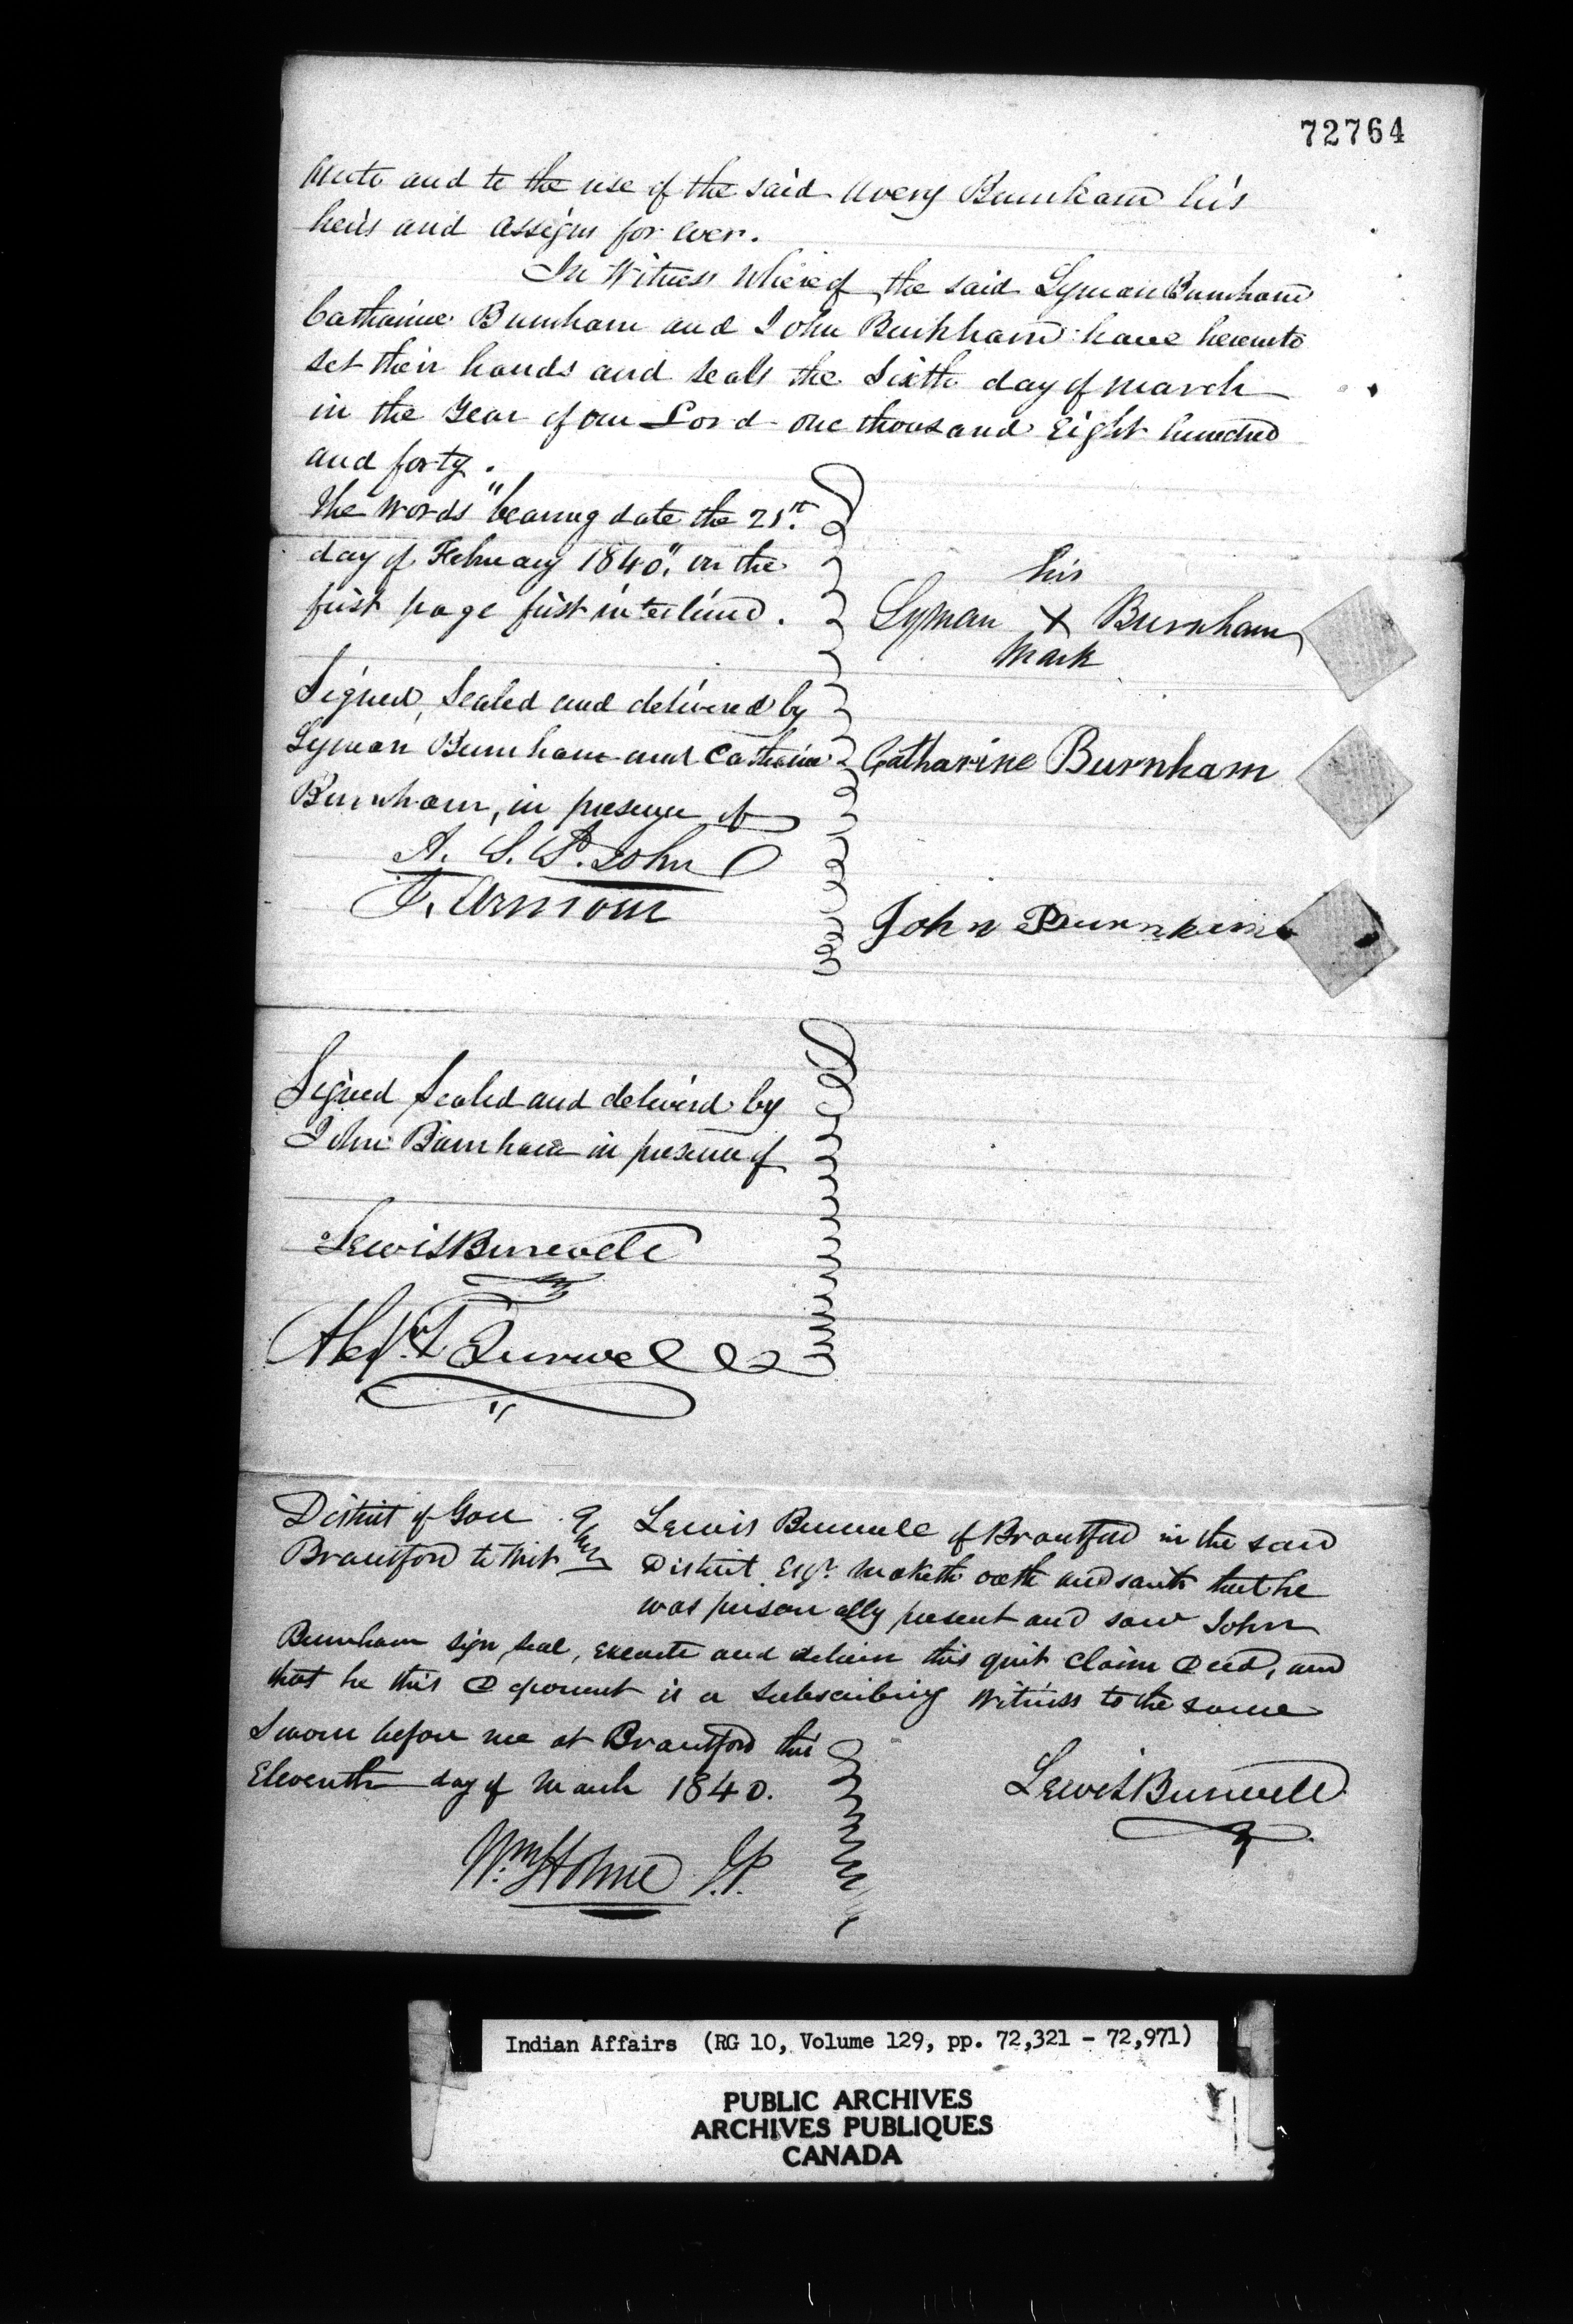 72764
unto and to the use of the said Avery Burnham his
heirs and assigns for ever.
In Witness Whereof the said Lyman Burnham
Catharine Burnham and John Burnham have hereunto
set their hands and seals the Sixth day of March
in the Year of our Lord one thousand Eight hundred
and forty.
The words "bearing date the 21st
day of February 1840", on the
first page first interlined.
his
Lyman X Burnham
Mark
Signed, Sealed and delivered by
Lyman Burnham and Catharine
Burnham, in presence of
Catharine Burnham
A. S. St. John
J. Armour
John Burnham
Signed Sealed and delivered by
John Burnham in presence of
Lewis Burwell
Burwell
District of Gore
Brantford to Wit
Lewis Burwell of Brantford in the said
District Esqr. Maketh oath and saith that he
was personally present and saw John
Burnham sign, seal, execute and deliver this quit claim Deed, and
that he this Deponent is a Subscribing Witness to the same
Sworn before me at Brantford this
Eleventh day of March 1840.
Lewis Burwell
Wm. Holme J.P.
Indian Affairs (RG 10, Volume 129, pp. 72,321 - 72,971)
PUBLIC ARCHIVES
ARCHIVES PUBLIQUES
CANADA